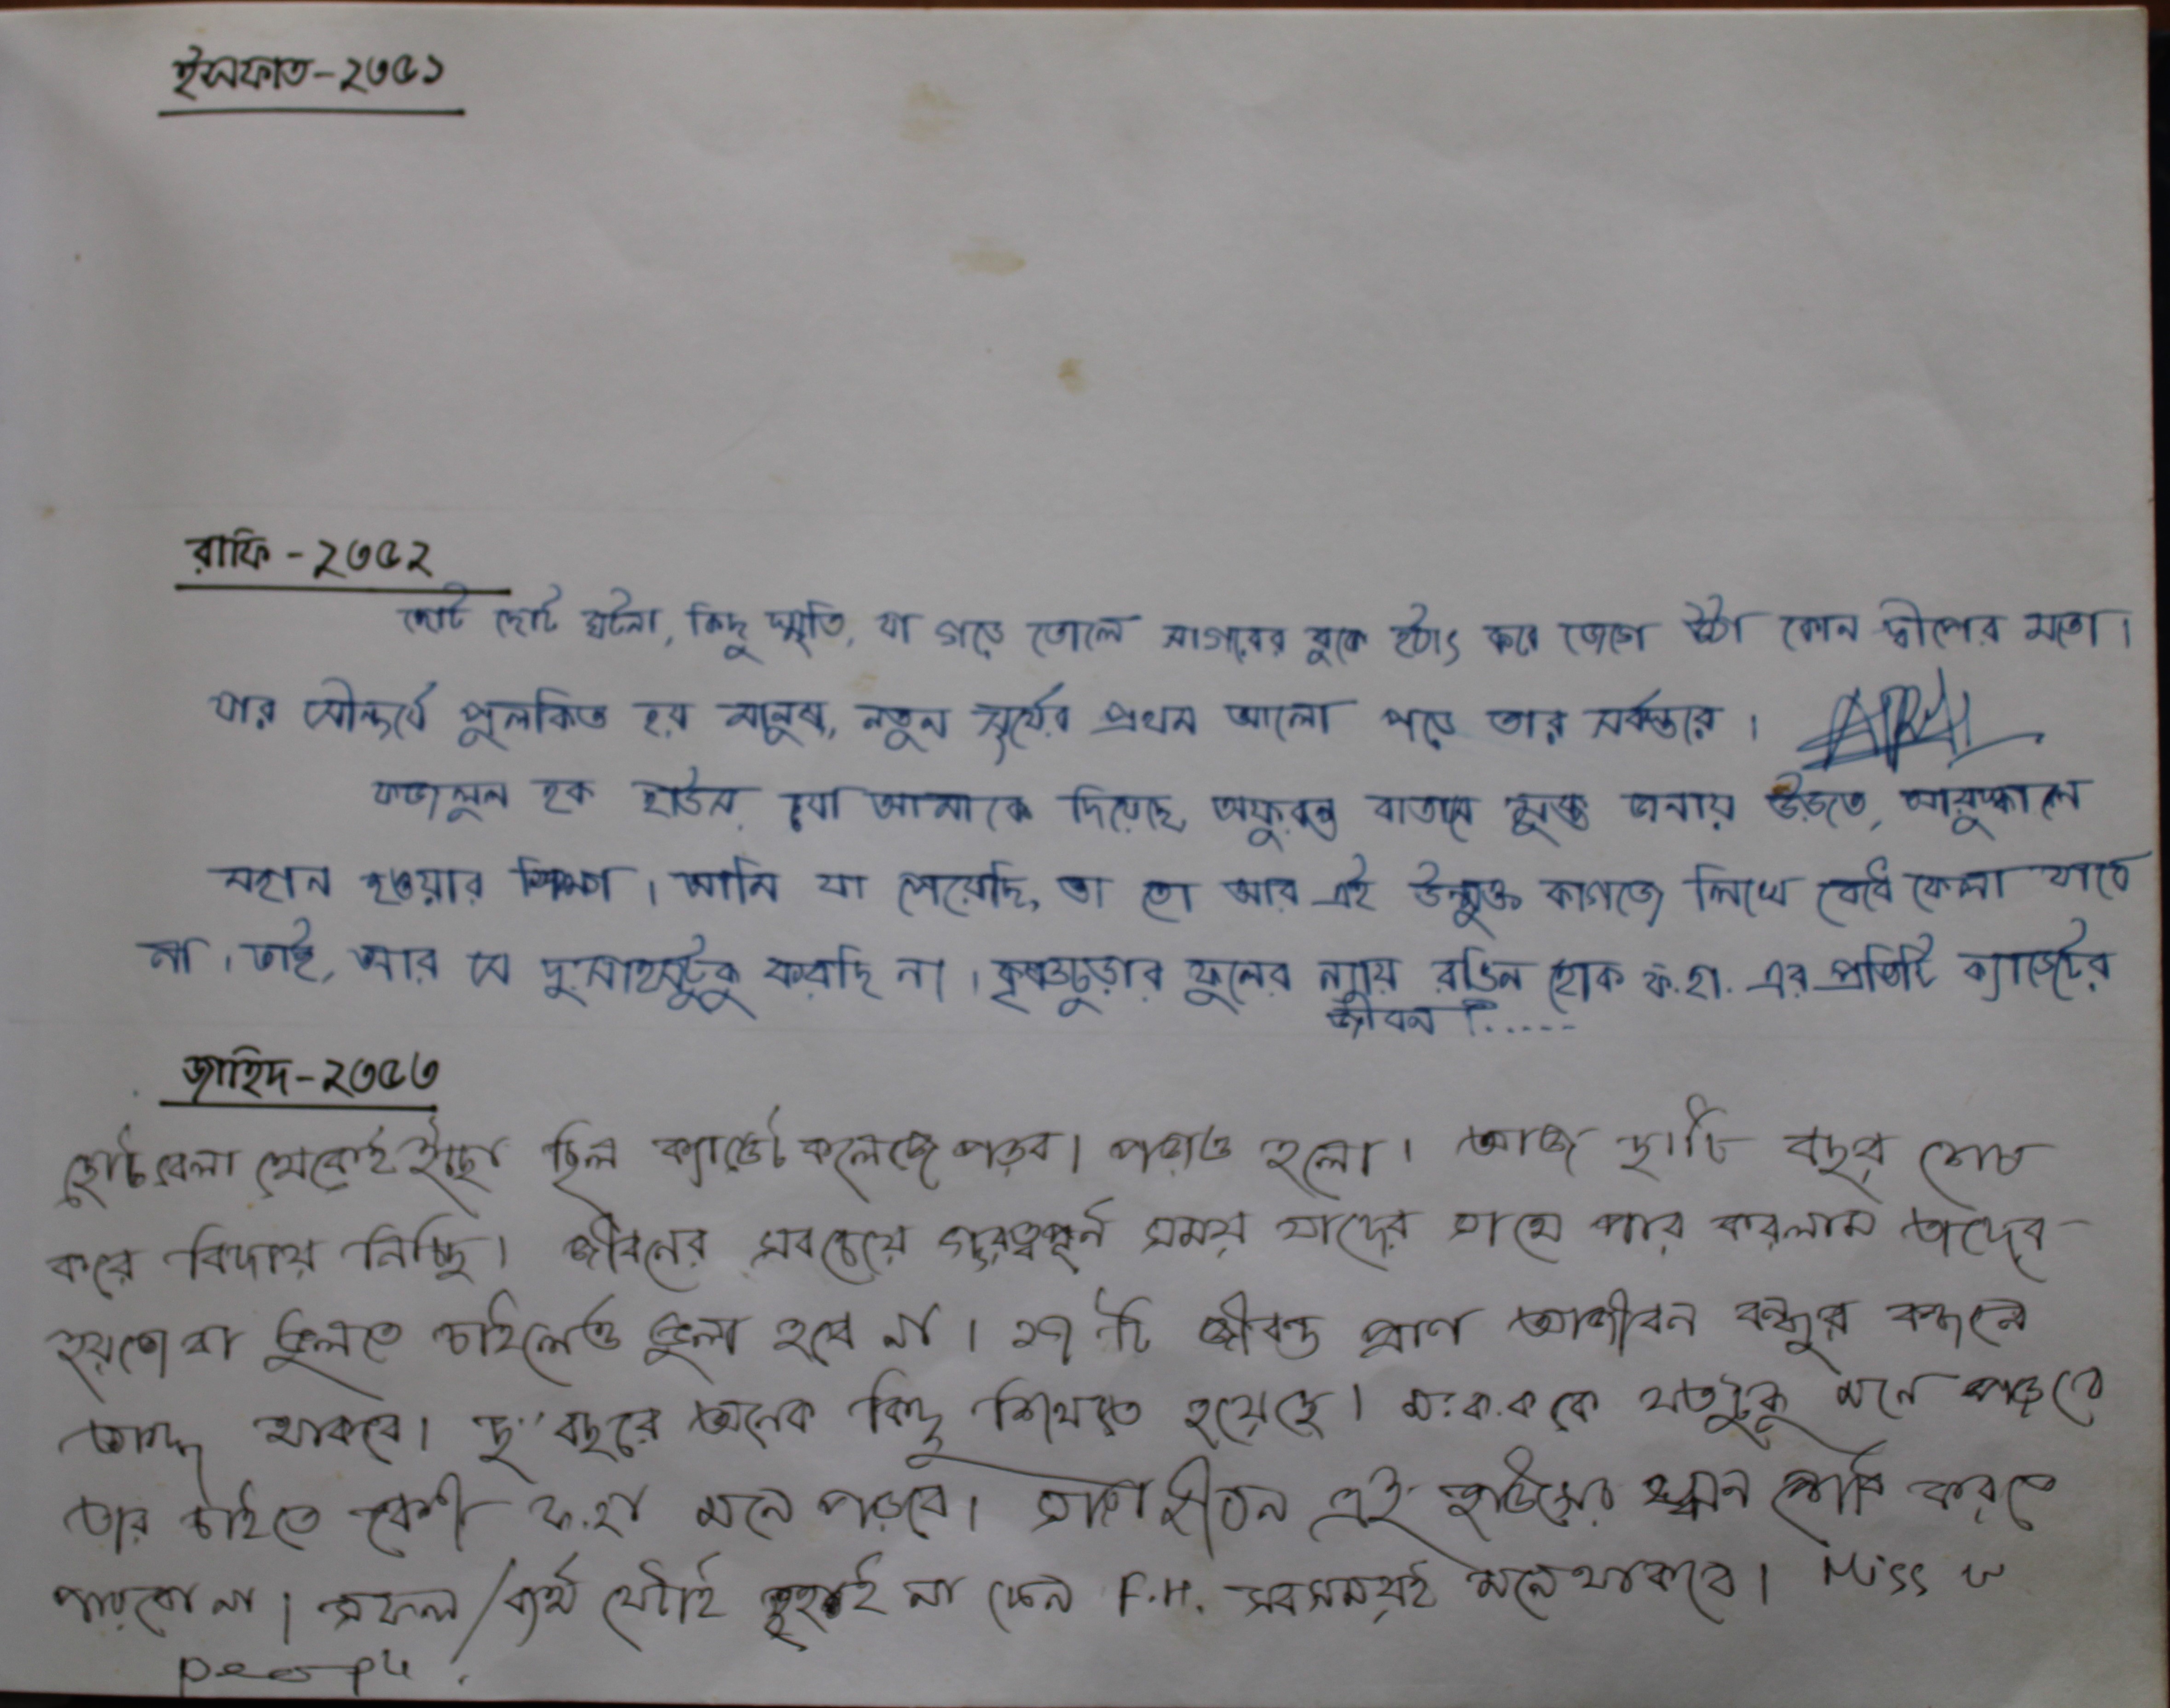 ইসফাত-২৩৫১
রাফি - ২৩৫২
ছোট ছোট ঘটনা, কিছু স্মৃতি, যা গড়ে তোলে সাগরের বুকে হঠাৎ করে জেগে উঠা কোন দ্বীপের মতো।
যার সৌন্দর্যে পুলকিত হয় মানুষ, নতুন সূর্যের প্রথম আলো পড়ে তার সর্বস্তরে।
ফজলুল হক হাউস, যা আমাকে দিয়েছে অফুরন্ত বাতাসে মুক্ত ডানায় উড়তে,
মহান হওয়ার শিক্ষা। আমি যা পেয়েছি, তা তো আর এই উন্মুক্ত কাগজে লিখে বেধে ফেলা যাবে
না। তাই, আর সে দুঃসাহসটুকু করছি না। কৃষ্ণচূড়ার ফুলের ন্যায় রঙিন হোক ফ.হা. এর প্রতিটি ক্যাডেটের
জীবন।.....
জাহিদ-২৩৫৩
ছোটবেলা থেকেই ইচ্ছা ছিল ক্যাডেট কলেজে পড়ব। পড়াও হলো। আজ ছ'টি বছর শেষ
করে বিদায় নিচ্ছি। জীবনের সবচেয়ে গুরত্বপূর্ন সময় যাদের সাথে পার করলাম তাদের
হয়তো বা ভুলতে চাইলেও ভুলা হবে না। ১৭ টি জীবন্ত প্রাণ আজীবন বন্ধুর বন্ধনে
আবদ্ধ থাকবে। ছ' বছরে অনেক কিছু শিখতে হয়েছে। ম.ক.ক কে যতটুকু মনে পড়বে
তার চাইতে বেশী ফ.হা মনে পড়বে। সারাজীবন এই হাউসের ঋন শোধ করতে
পারবো না। সফল/ব্যর্থ যেটাই হই না কেন F.H. সবসময়ই মনে থাকবে। Miss u
people.